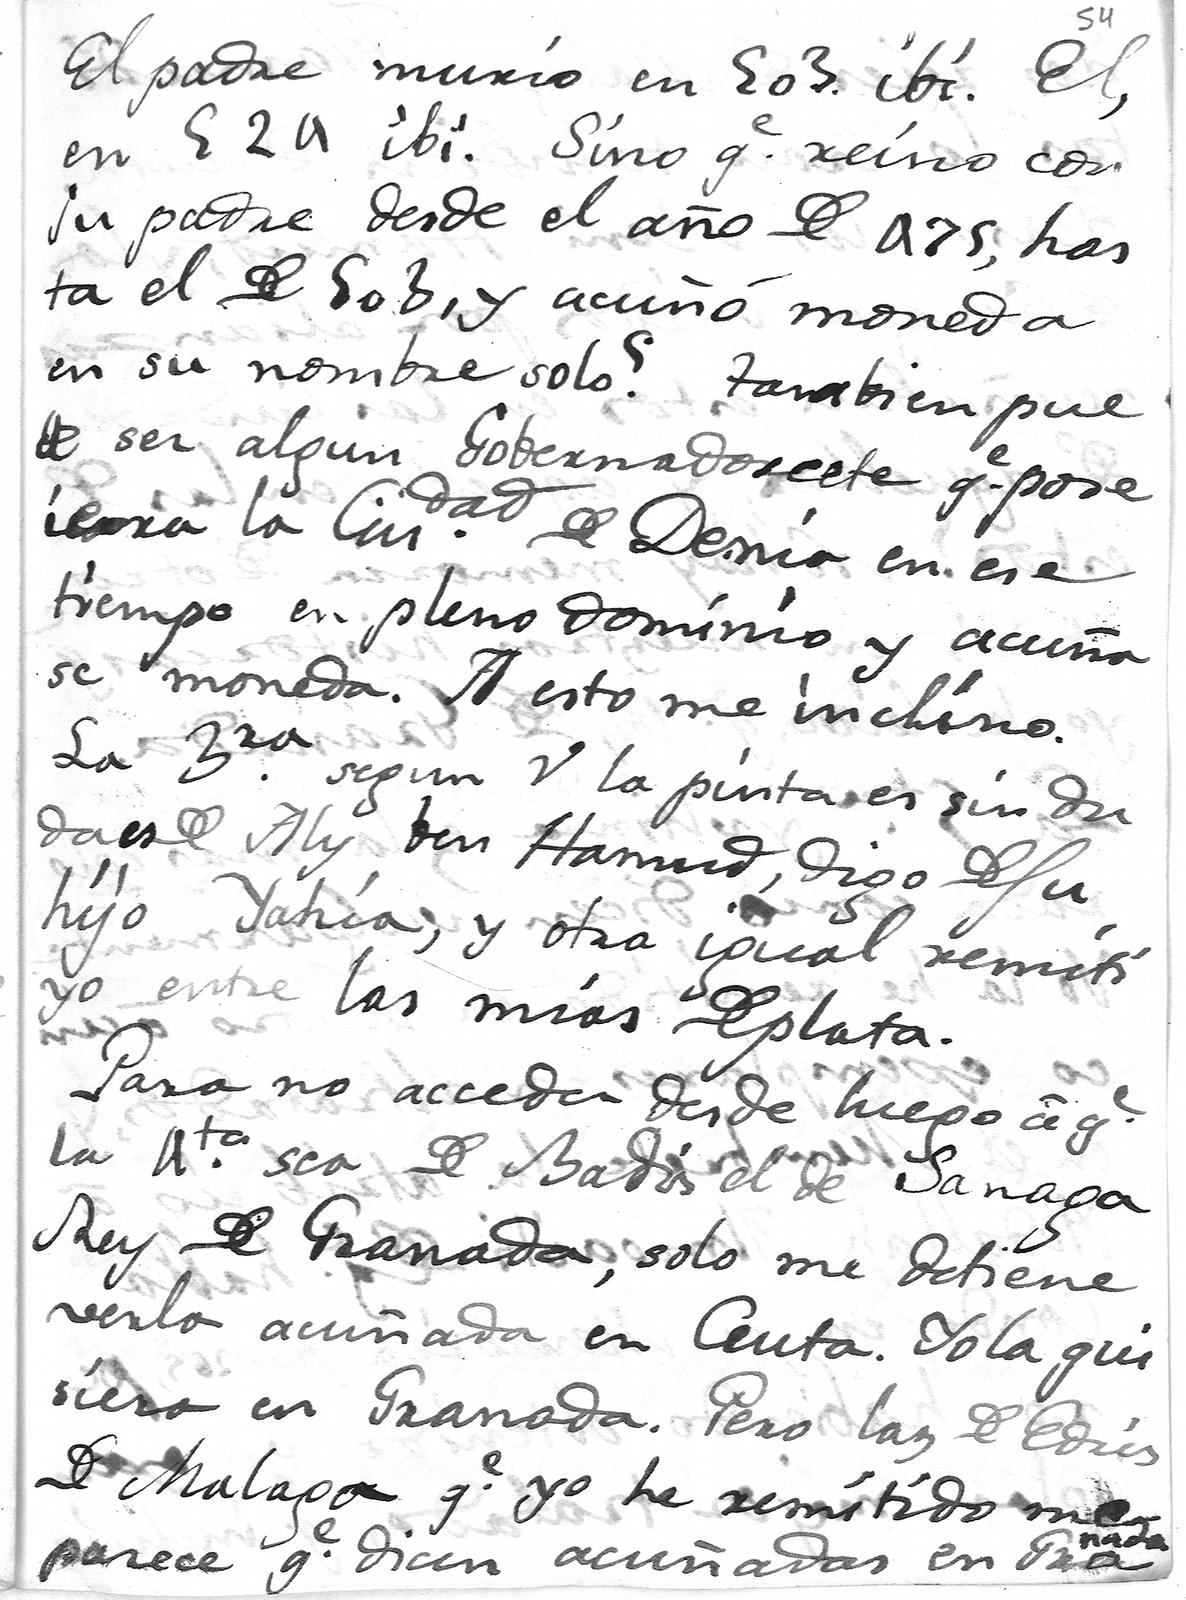 54
El padre murio en 503. ibi. El,
en 524 ibi. Sino q.e reino con
su padre desde el año de 475, has
ta el de 503, y acuñó moneda
en su nombre solo? Tambien pue
de ser algun Gobernadorcete q.e pose
iera la Ciu.dad de Denia en ese
tiempo en pleno dominio y acuña
se moneda. A esto me inclino.
La 3.ra segun V la pinta es sin du
da es de Aly ben Hamud, digo de su
hijo Yahia, y otra igual remiti
yo entre las mias de plata.
Para no acceder desde luego á q.e
la 4.ta sea de Badis el de Sanaga
Rey de Granada, solo me detiene
verla acuñada en Ceuta. Yo la qui
siera en Granada. Pero las de Edris
de Malaga q.e yo he remitido me
parece q.e dicen acuñadas en Gra
nada